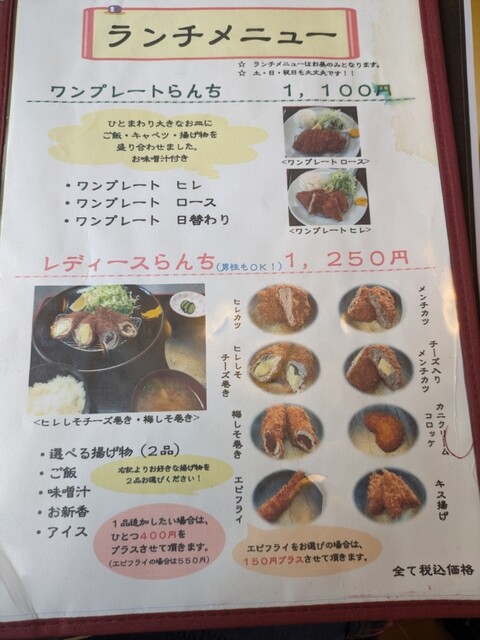 ランチメニュー
☆ ランチメニューはお昼のみとなります。
☆ 土・日・祝日も大丈夫です!!
ワンプレートらんち 1,100円
ひとまわり大きなお皿に
ご飯・キャベツ・揚げ物を
盛り合わせました。
お味噌汁付き
<ワンプレート ロース>
・ワンプレート ヒレ
・ワンプレート ロース
・ワンプレート 日替わり
<ワンプレート ヒレ>
レディースらんち(男性もOK!) 1,250円
<ヒレしそチーズ巻き・梅しそ巻き>
ヒレカツ
メンチカツ
ヒレしそ
チーズ巻き
チーズ入り
メンチカツ
梅しそ巻き
カニクリーム
コロッケ
エビフライ
キス揚げ
・選べる揚げ物(2品)
・ご飯
・味噌汁
・お新香
・アイス
右記よりお好きな揚げ物を
2品お選びください!
1品追加したい場合は、
ひとつ400円を
プラスさせて頂きます。
(エビフライの場合は550円)
エビフライをお選びの場合は、
150円プラスさせて頂きます。
全て税込価格